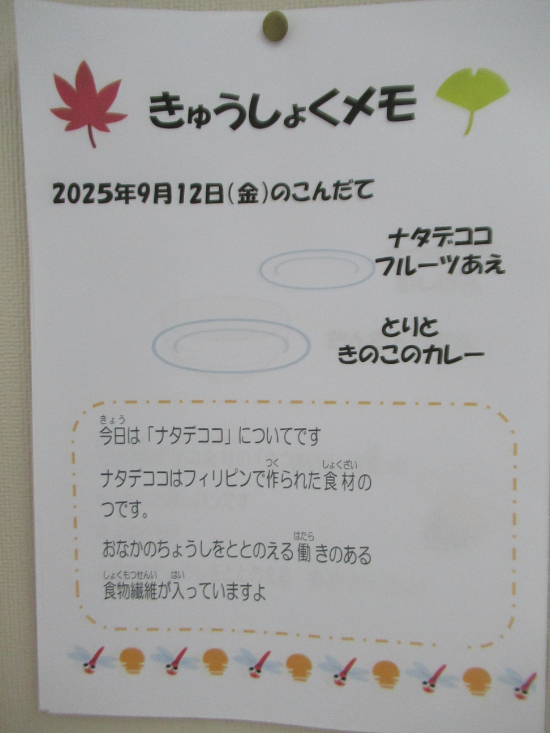 きゅうしょくメモ
2025年9月12日(金)のこんだて
ナタデココ
フルーツあえ
とりと
きのこのカレー
きょう
今日は「ナタデココ」についてです
つく しょくざい
ナタデココはフィリピンで作られた食材の
つです。
はたら
おなかのちょうしをととのえる働きのある
しょくもつせんい はい
食物繊維が入っていますよ